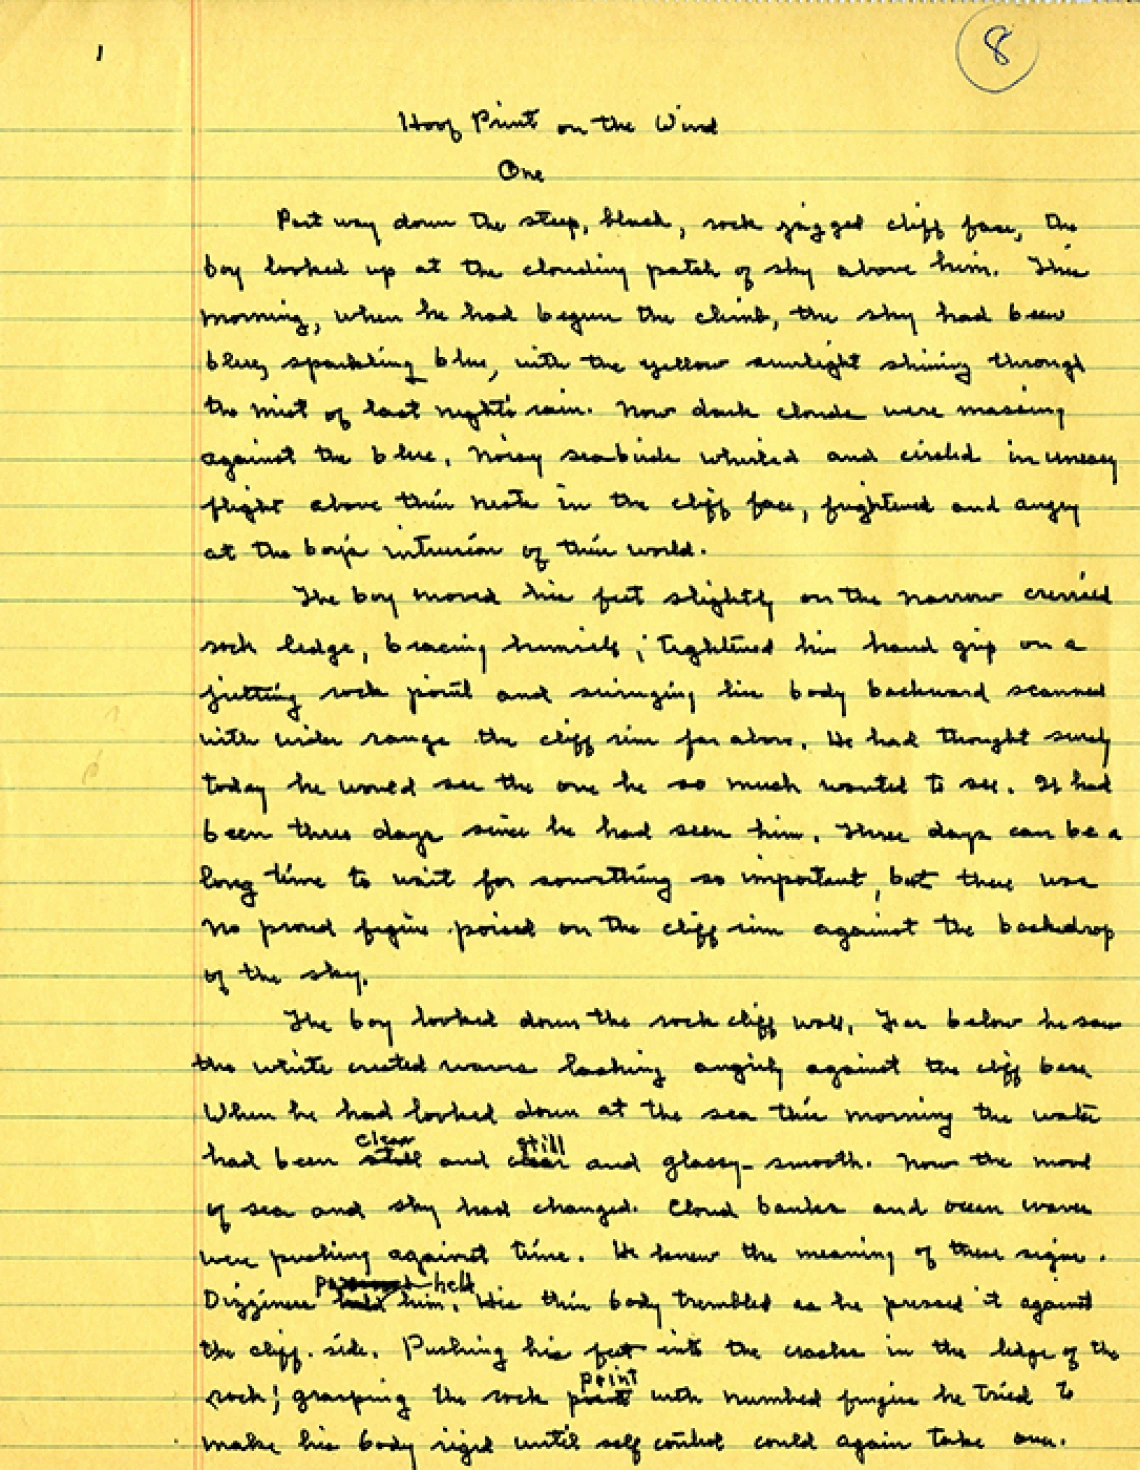 1
8
Hoof Print on the Wind
One
Part way down the steep, black, rock jagged cliff face, the
boy looked up at the clouding patch of sky above him. This
morning, when he had begun the climb, the sky had been
blue, sparkling blue, with the yellow sunlight shining through
the mist of last night's rain. Now dark clouds were massing
against the blue. Noisy seabirds whirled and circled in uneasy
flight above their nests in the cliff face, frightened and angry
at the boy's intrusion of their world.
The boy moved his feet slightly on the narrow creviced
rock ledge, bracing himself; tightened his hand grip on a
jutting rock point and swinging his body backward scanned
with wider range the cliff rim far above. He had thought surely
today he would see the one he so much wanted to see. It had
been three days since he had seen him. Three days can be a
long time to wait for something so important, but there was
no proud figure poised on the cliff rim against the backdrop
of the sky.
The boy looked down the rock cliff wall. Far below he saw
the white crested waves lashing angrily against the cliff base
When he had looked down at the sea this morning the water
clear still
had been still and clear and glassy-smooth. Now the mood
of sea and sky had changed. Cloud banks and ocean waves
were pushing against time. He knew the meaning of these signs.
held
Dizziness held him. His thin body trembled as he pressed it against
the cliff side. Pushing his feet into the cracks in the ledge of the
point
rock; grasping the rock point with numbed fingers he tried to
make his body rigid until self control could again take over.